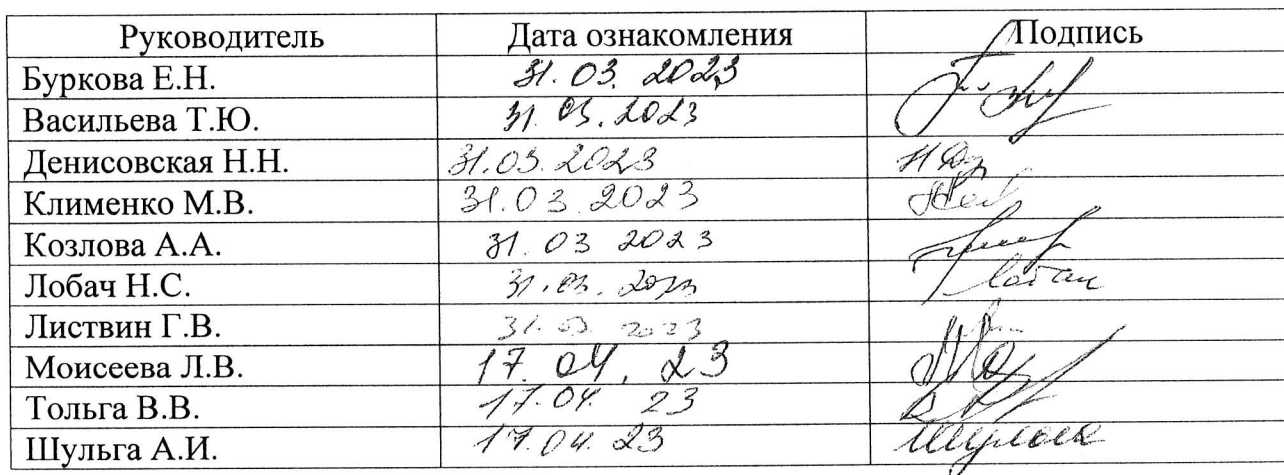 Руководитель Дата ознакомления Подпись
Буркова Е.Н. 31.03.2023
Васильева Т.Ю. 31.03.2023
Денисовская Н.Н. 31.03.2023
Клименко М.В. 31.03.2023
Козлова А.А. 31.03 2023
Лобач Н.С. 31.03.2023 Лобач
Листвин Г.В. 31.03.2023
Моисеева Л.В. 17.04.23
Тольга В.В. 17.04. 23
Шульга А.И. 17.04.23 Шульга